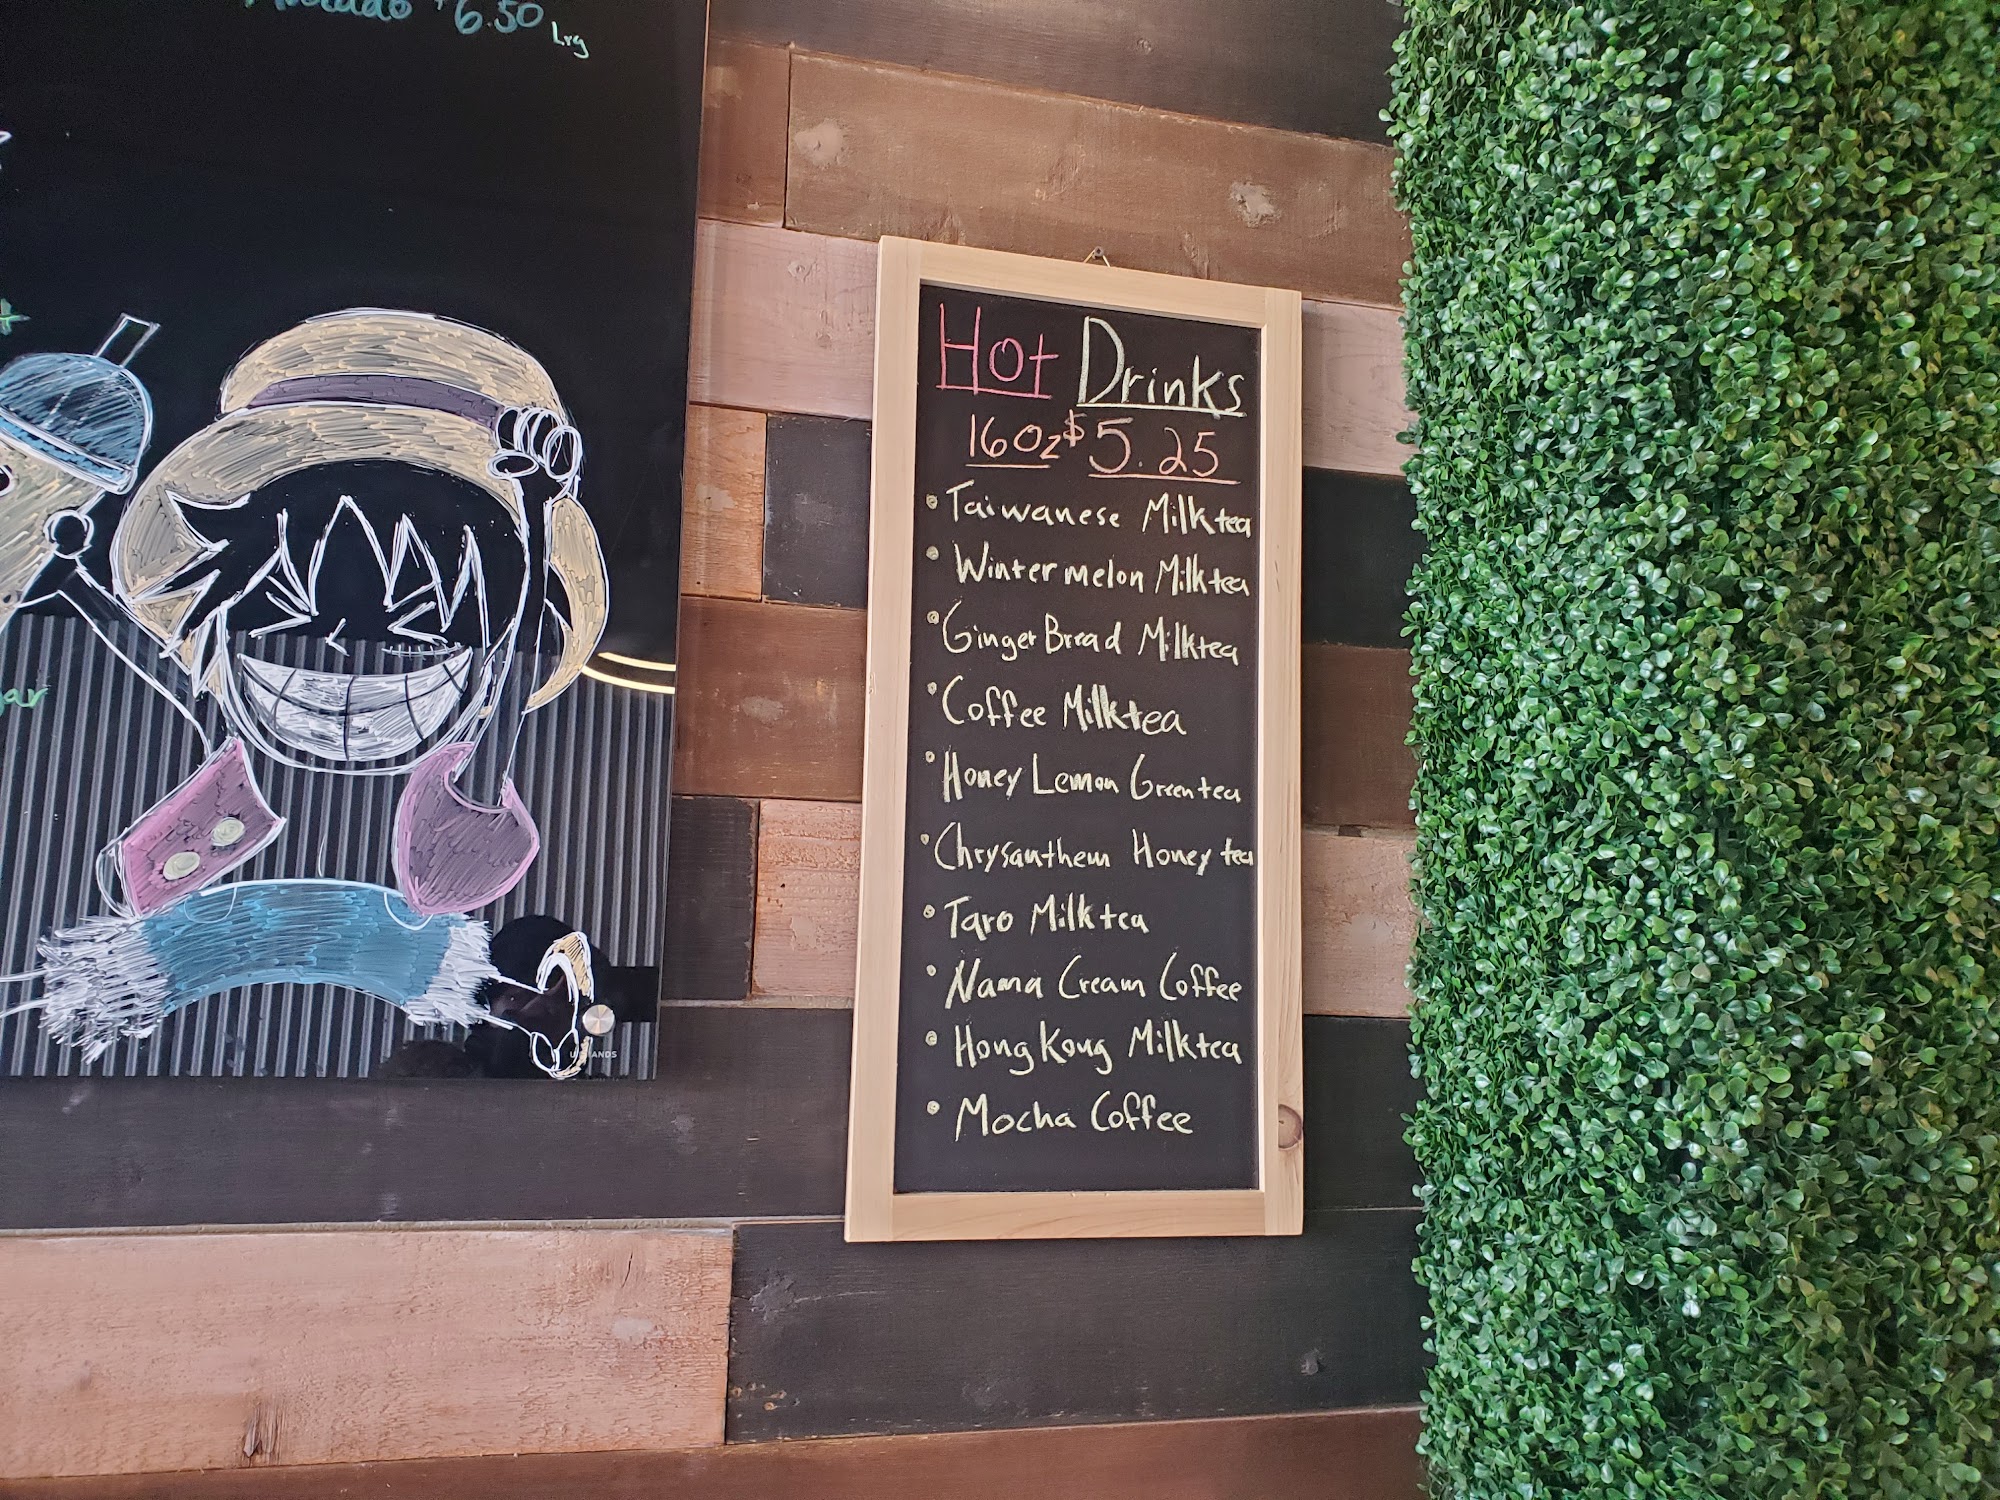 6.50 Lrg
Hot Drinks
16oz $5.25
Taiwanese Milktea
Wintermelon Milktea
GingerBread Milktea
Coffee Milktea
Honey Lemon Greentea
Chrysanthem Honey tea
Taro Milktea
Nama Cream Coffee
Hong Kong Milktea
Mocha Coffee